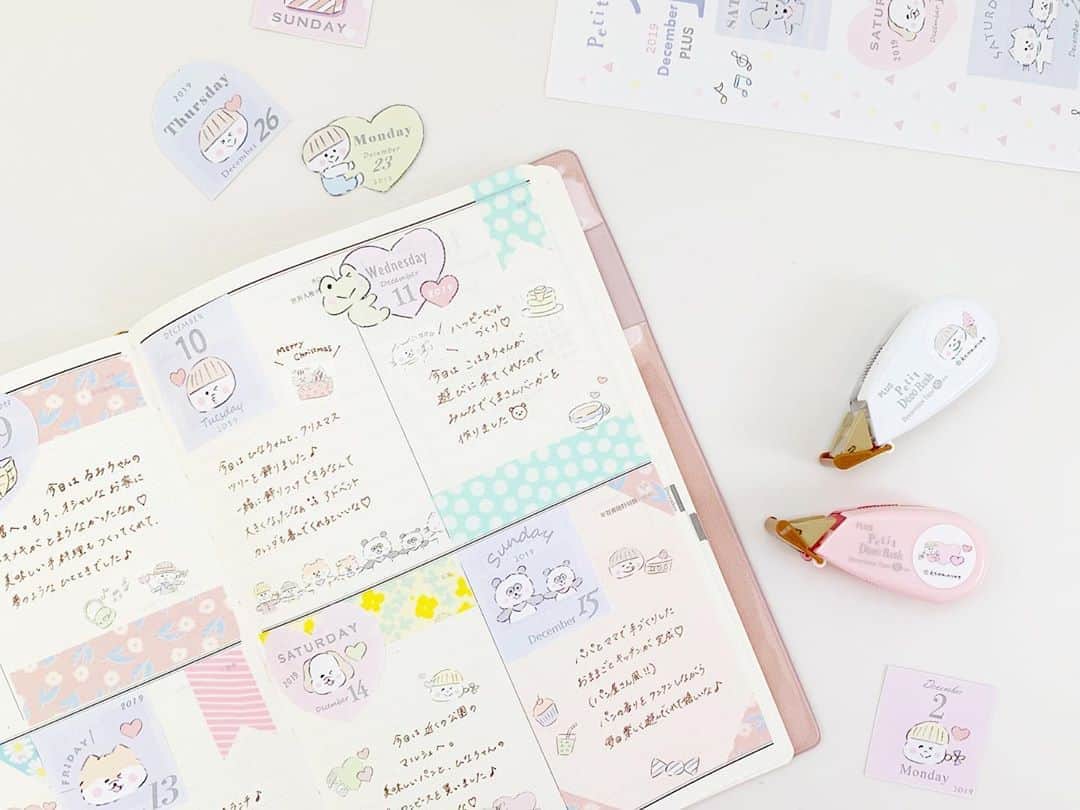 SUNDAY
2019
Thursday
December 26
Monday
December
23
2019
Petit
2019
December
PLUS
SATURDAY
2019
DECEMBER
10
Tuesday
2019
Merry
Christmas
今日はひなちゃんと、クリスマス
ツリーを飾りました♪
一緒に飾りつけできるなんて
大きくなったなぁ
アドベント
カレンダも喜んでくれるといいな♡
Wednesday
December
11
2019
ハッピーセット
づくり♡
今日はこはるちゃんが
遊びに来てくれたので
みんなでくまさんバーガーを
作りました
9
今日はるみちゃんの
へ。もう、オシャレなお家に
トキメキがとまらなかったなぁ♡
美味しい手料理もつくってくれて、
夢のようなひとときでした♪
FRIDAY
2019
13
ランチ♪
SATURDAY
2019
December
14
今日は近くの公園の
マルシェへ。
美味しいパンと、ひなちゃんの
ワンピースを買いました♪
Sunday
2019
December 15
パパとママで手づくりした
おままごとキッチンが完成♡
(パン屋さん風!!)
パンの香りをクンクンしながら
毎日楽しく遊んでくれて嬉しいな♪
PLUS
Petit
Deco Rush
Decoration Tape
PLUS
Petit
Deco Rush
Decoration Tape
December
2
Monday
2019